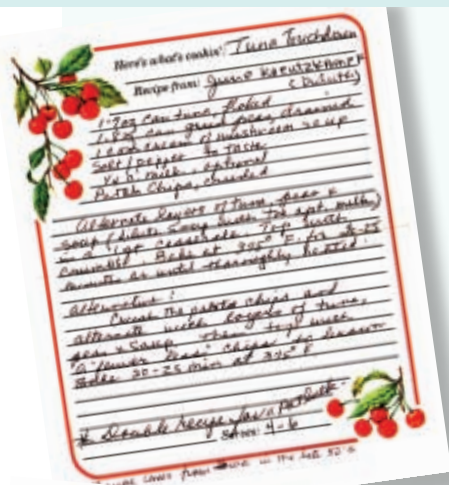 Here's what's cookin': Tuna Touchdown
Recipe from: June
(Duluth)
1 - 7 oz can tuna, flaked
1 - 8 oz can green peas, drained
1 can cream of mushroom soup
Salt / pepper to taste
milk, optional
Potato Chips, crushed
Alternate layers of tuna, peas &
soup (dilute soup with the opt. milk)
in a 1 qt casserole. Top with
Bake at 375° F. for 20-25
minutes or until thoroughly heated.
alternative:
Crush the potato chips and
alternate with layers of tuna,
peas & soup, then top with
chips to brown
Bake 20-25 min at 375° F.
* Double recipe for a potluck -
Serves: 4-6
from in the late 50's